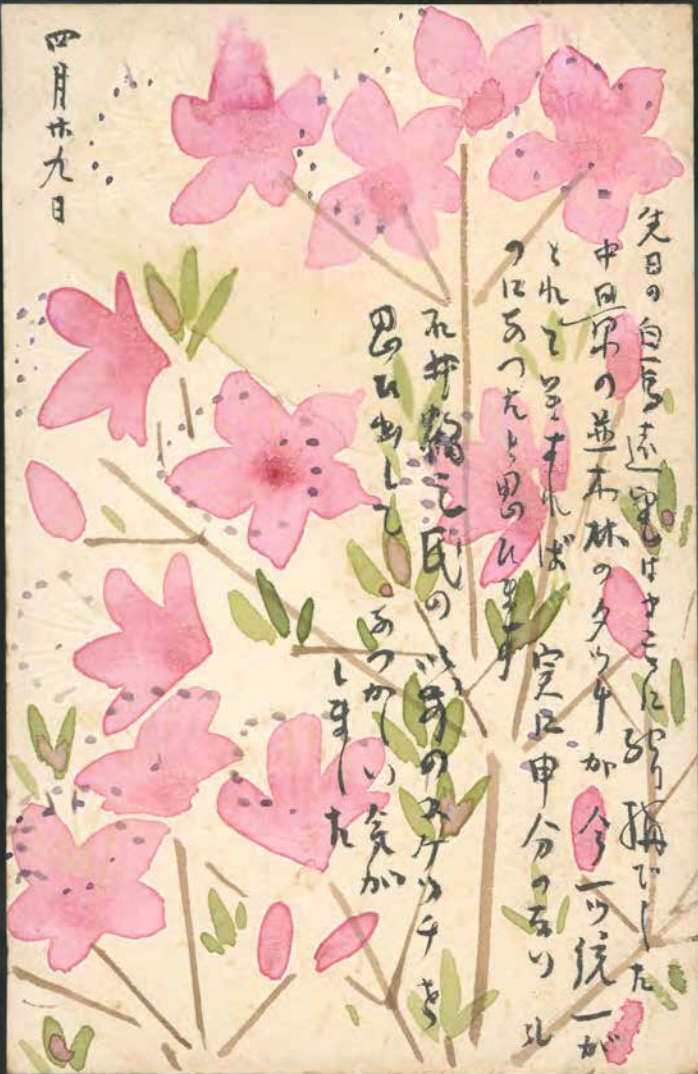 先日の白馬遠望はまことに結構でした
中景の並木林のタッチが今一ツ統一が
とれて居ますれば 実に申分の無いも
のになつたと思ひます
石井鶴三氏の以前のスケッチを
思ひ出して なつかしい気が
しました
四月廿九日